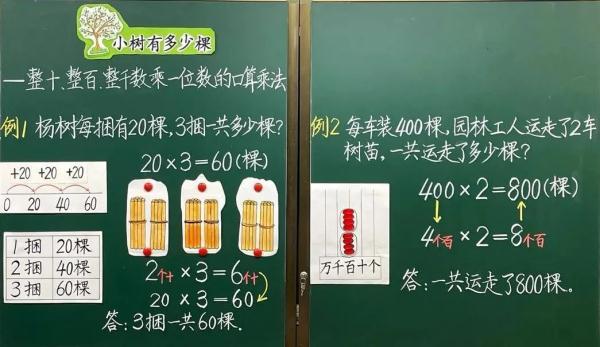 小树有多少棵
—整十、整百、整千数乘一位数的口算乘法
例1 杨树每捆有20棵,3捆一共多少棵?
20×3=60(棵)
+20 +20 +20
0 20 40 60
1捆 20棵
2捆 40棵
3捆 60棵
2个十×3=6个十
20×3=60
答:3捆一共60棵.
例2 每车装400棵,园林工人运走了2车
树苗,一共运走了多少棵?
400×2=800(棵)
4个百×2=8个百
万千百十个
答:一共运走了800棵。